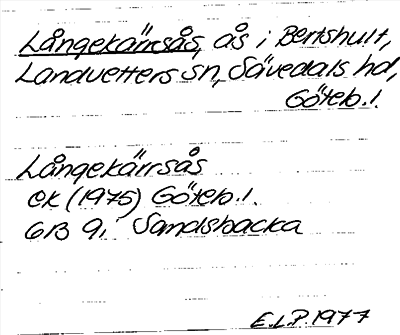 Långekärrsås, ås i Bertshult,
Landvetters sn, Sävedals hd,
Göteb. l.
Långekärrsås
ek (1975) Göteb. l.
6B 9i Sandsbacka
E.L.P. 1977